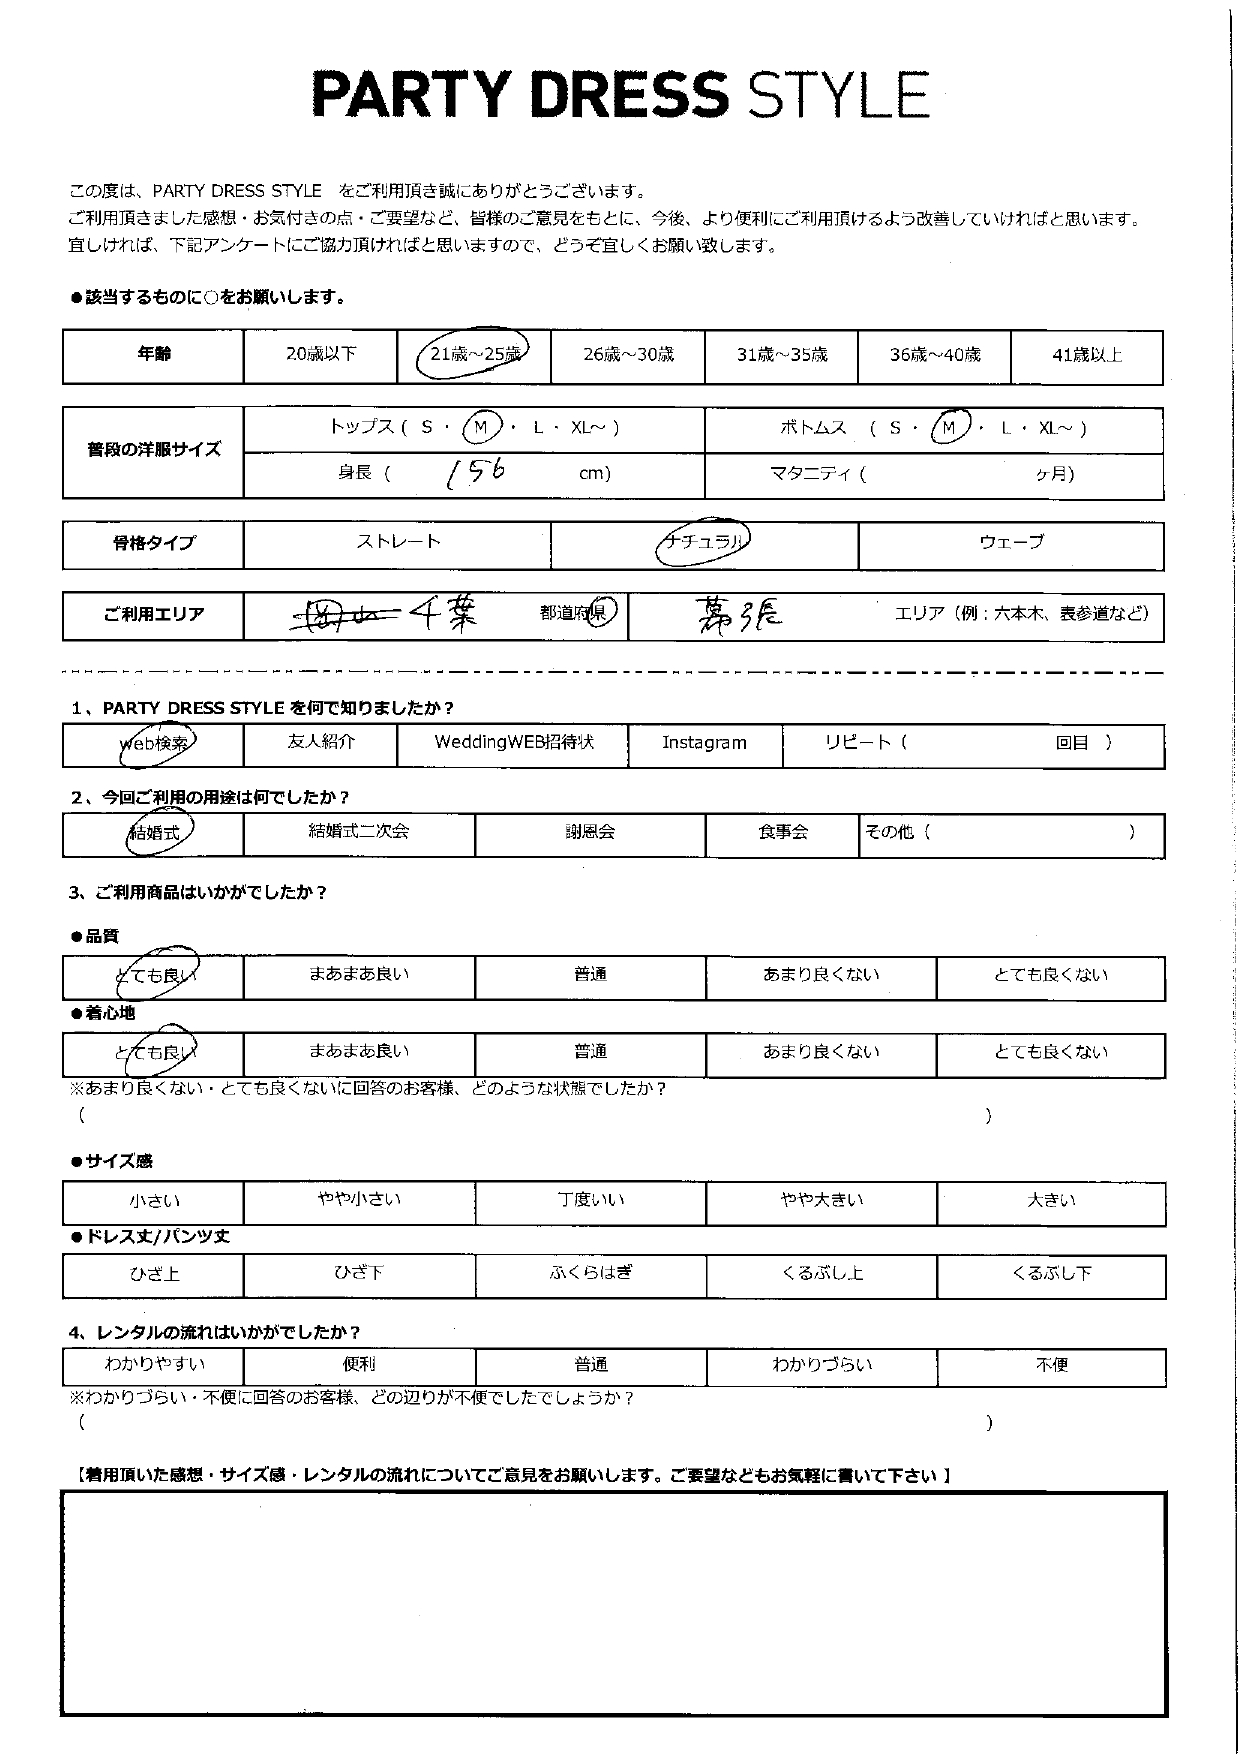 PARTY DRESS STYLE
この度は、PARTY DRESS STYLE をご利用頂き誠にありがとうございます。
ご利用頂きました感想・お気付きの点・ご要望など、皆様のご意見をもとに、今後、より便利にご利用頂けるよう改善していければと思います。
宜しければ、下記アンケートにご協力頂ければと思いますので、どうぞ宜しくお願い致します。
●該当するものに○をお願いします。
年齢 20歳以下 21歳～25歳 26歳～30歳 31歳～35歳 36歳～40歳 41歳以上
普段の洋服サイズ
トップス ( S ・ M ・ L ・ XL～ ) ボトムス ( S ・ M ・ L ・ XL～ )
身長 ( 156 cm) マタニティ ( ヶ月)
骨格タイプ ストレート ナチュラル ウェーブ
ご利用エリア 千葉 都道府県 幕張 エリア（例：六本木、表参道など）
1、PARTY DRESS STYLE を何で知りましたか？
Web検索 友人紹介 WeddingWEB招待状 Instagram リピート ( 回目 )
2、今回ご利用の用途は何でしたか？
結婚式 結婚式二次会 謝恩会 食事会 その他 ( )
3、ご利用商品はいかがでしたか？
●品質
とても良い まあまあ良い 普通 あまり良くない とても良くない
●着心地
とても良い まあまあ良い 普通 あまり良くない とても良くない
※あまり良くない・とても良くないに回答のお客様、どのような状態でしたか？
( )
●サイズ感
小さい やや小さい 丁度いい やや大きい 大きい
●ドレス丈/パンツ丈
ひざ上 ひざ下 ふくらはぎ くるぶし上 くるぶし下
4、レンタルの流れはいかがでしたか？
わかりやすい 便利 普通 わかりづらい 不便
※わかりづらい・不便に回答のお客様、どの辺りが不便でしたでしょうか？
( )
【着用頂いた感想・サイズ感・レンタルの流れについてご意見をお願いします。ご要望などもお気軽に書いて下さい 】